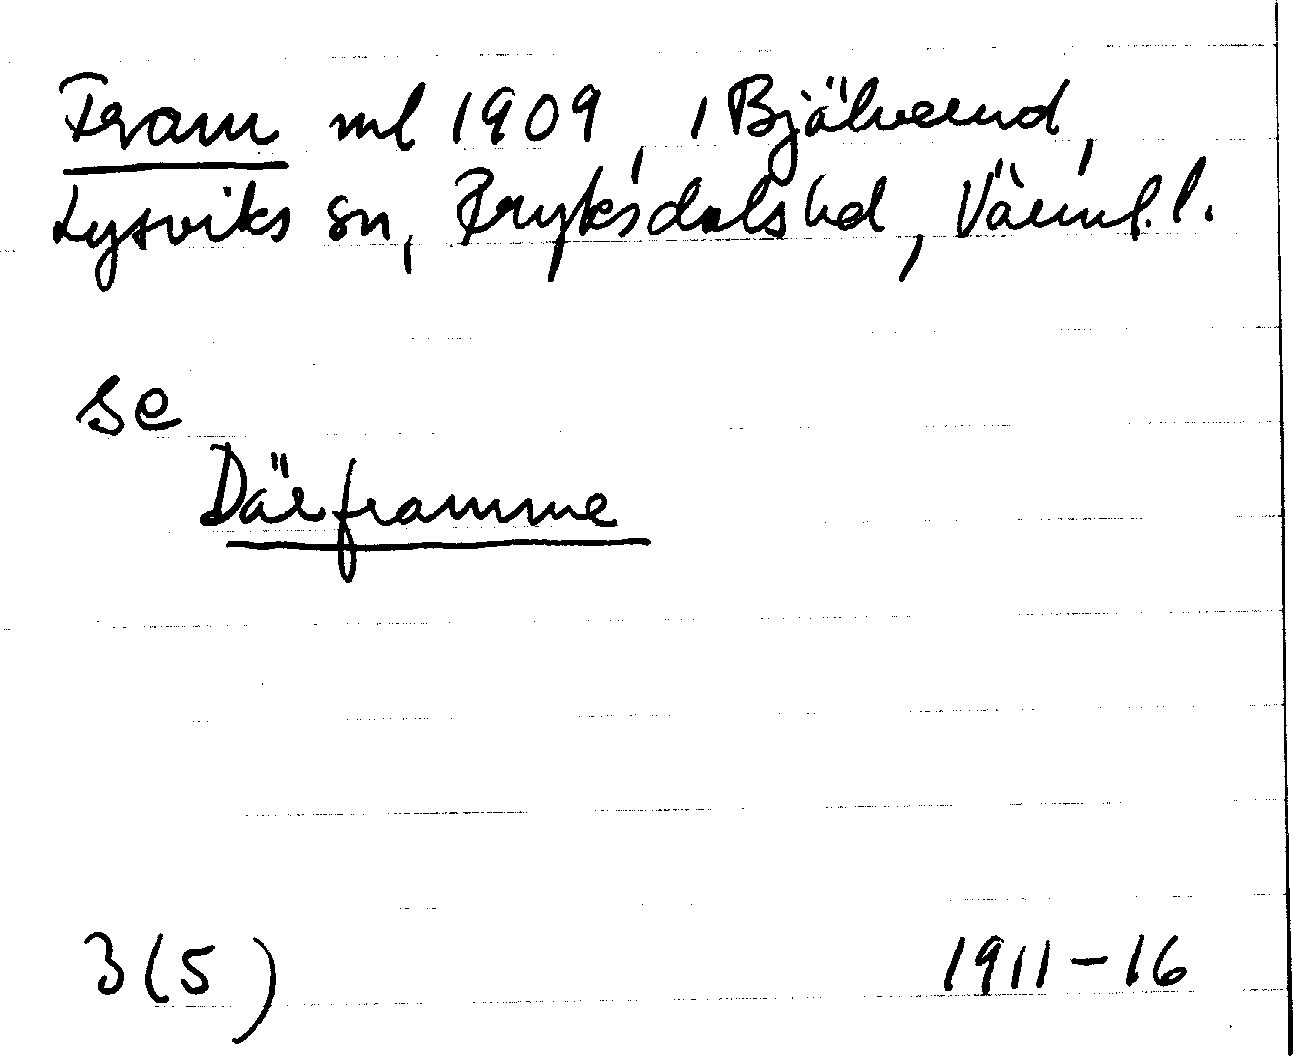 Fram ml 1909, i Bjälverud,
Lysviks sn, Fryksdals hd, Värml. l.
se
Därframme
3(5) 1911-16